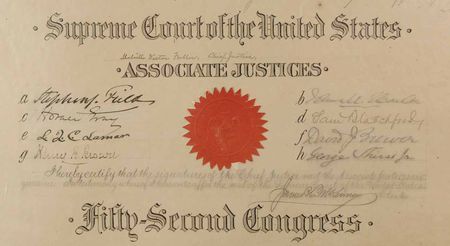 Supreme Court of the United States
Melville Weston Fuller, Chief Justice,
ASSOCIATE JUSTICES
a Stephen J. Field b
c Horace Gray d Sam Blatchford
e L Q C Lamar f David J Brewer
g Henry B. Brown h George Shiras Jr.
I hereby certify that the signatures of the Chief Justice and the
Fifty-Second Congress